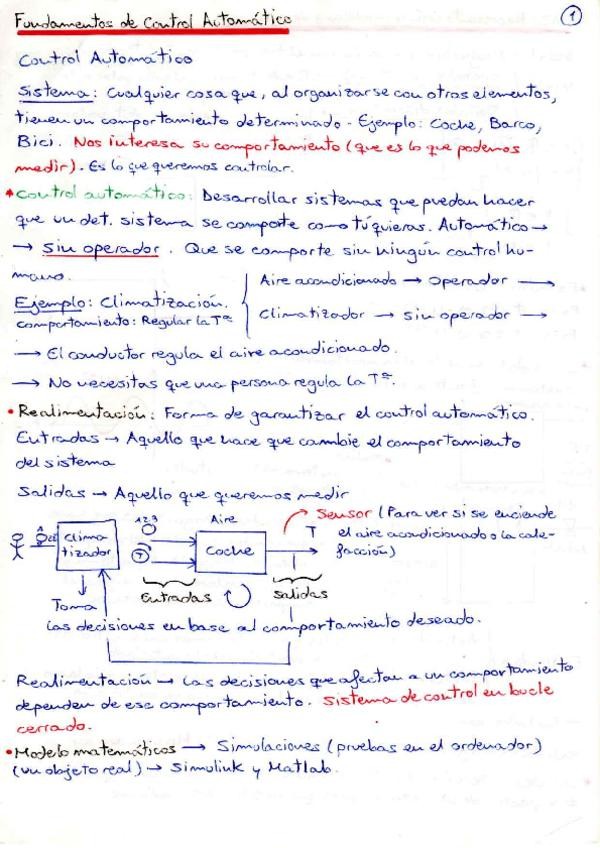 Fundamentos de Control Automático
1
Control Automático
Sistema: Cualquier cosa que, al organizarse con otros elementos,
tienen un comportamiento determinado. Ejemplo: Coche, Barco,
Bici. Nos interesa su comportamiento (que es lo que podemos
medir). Es lo que queremos controlar.
Control automático: Desarrollar sistemas que puedan hacer
que un det. sistema se comporte como tú quieras. Automático →
→ Sin operador. Que se comporte sin ningún control hu-
mano.
Aire acondicionado → Operador →
Ejemplo: Climatización.
comportamiento: Regular la Tª
Climatizador → sin operador →
→ El conductor regula el aire acondicionado.
→ No necesitas que una persona regula la Tª.
• Realimentación: Forma de garantizar el control automático.
Entradas → Aquello que hace que cambie el comportamiento
del sistema
Salidas → Aquello que queremos medir
Sensor (Para ver si se enciende
el aire acondicionado o la cale-
facción)
123
Aire
T
Clima-
tizador
T
Coche
Entradas
Salidas
Toma
las decisiones en base al comportamiento deseado.
Realimentación → Las decisiones que afectan a un comportamiento
dependen de ese comportamiento. Sistema de control en bucle
cerrado.
• Modelo matemáticos → Simulaciones (pruebas en el ordenador)
(un objeto real) → Simulink y Matlab.